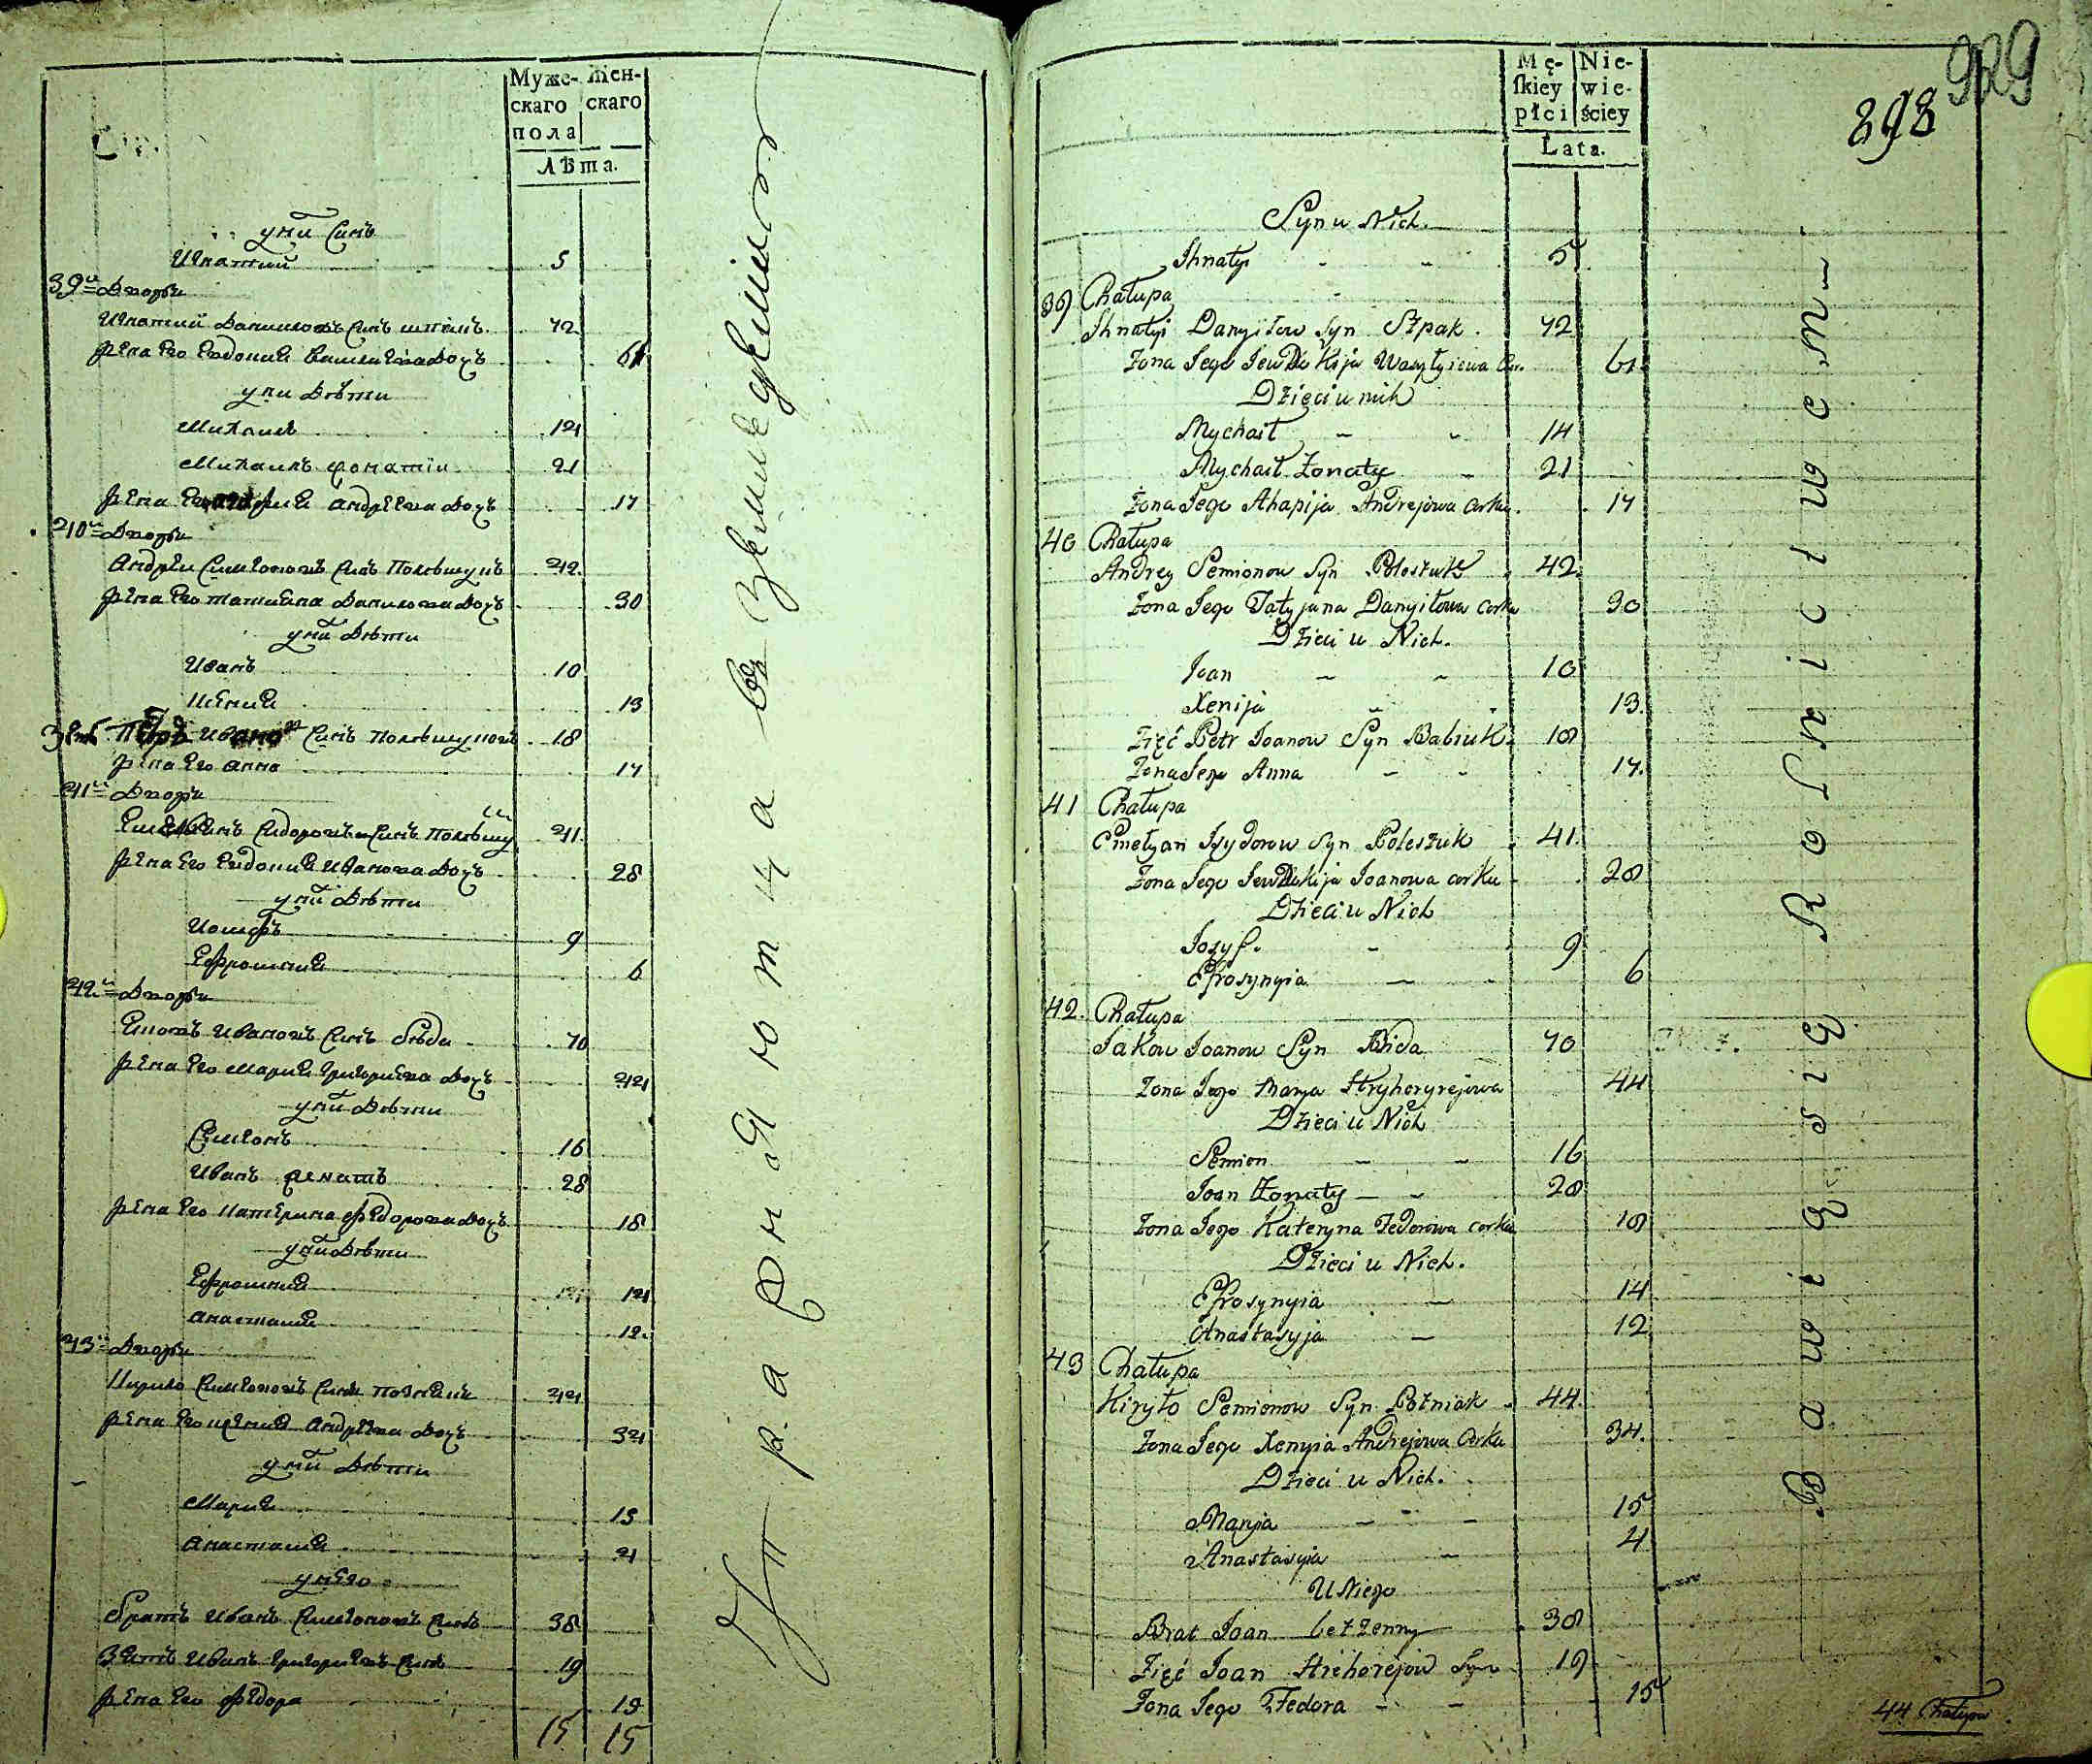 Муже- Жен-
скаго скаго
пола
Лѣта.
у ни Синъ
Игнатий 5
39й Дворъ
Игнатий Даниловъ Синъ шпакъ 72
жена Его Евдокия Василиева дочь 61
у ни Дѣти
Михаилъ 14
Михаилъ жонатій 21
жена Его Андреева Дочъ 17
40й Дворъ
Андрей Симеоновъ Синъ Полѣшукъ 42
жена Его татиѧна Данилова Дочъ 30
у ни Дѣти
Иванъ 10
Ксения 13
Зять Петръ Иванов Синъ 18
жена Его анна 17
41й Дворъ
Сидоровъ Синъ Полѣшу 41
жена Его Евдокия Иванова Дочъ 28
у ни Дѣти
Иосифъ 9
Ефросиния 6
42й Дворъ
Яковъ Ивановъ Синъ бѣда 70
жена Его Мария Григориева Дочъ 44
у ни Дѣти
Симеонъ 16
Иванъ женатъ 28
жена Его Катерина Федорова Дочъ 18
у ни Дѣти
Ефросиния 14
Анастасия 12
43й Дворъ
Кирило Симеоновъ Синъ 44
жена Его Ксения Андреева Дочъ 34
у ни Дѣти
Мария 15
Анастасия 4
у него
братъ Иванъ Симеоновъ Синъ 38
Зять Иванъ Григориевъ Синъ 19
жена Его Федора 15
15 15
Mę- Nie-
ſkiey wie-
płci ściey
Lata.
929
898
Syn u Nich.
Ihnatyi 5
39 Chałupa
Ihnatyi Danyiłow Syn Szpak. 72
Żona Jego Jewdokija Wasyłyiewa Cor. 61
Dzieci u nich
Mychaił 14
Mychaił Żonaty 21
Żona Jego Ahapija Andrejowa Corka. 17
40 Chałupa
Andrey Semionow Syn Poleszuk 42
Żona Jego Tatyjana Danyiłowa Corka 30
Dzieci u Nich.
Joan 10
Xenija 13.
Zięć Petr Joanow Syn Babiuk 18
Żona Jego Anna 17.
41 Chałupa
Emełyan Isydorow Syn Poleszuk 41.
Żona Jego Jewdokija Joanowa corka 28
Dzieci u Nich
Jozyf. 9
Efrosynyia 6
42. Chałupa
Jakow Joanow Syn Bida 70
Żona Jego Marya Hryhoryrejowa 44
Dzieci u Nich
Semion 16
Joan Żonaty 28
Żona Jego Kateryna Fedorowa corka 18
Dzieci u Nich.
Efrosynyia 14
Anastasyja 12
43 Chałupa
Kiryło Semionow Syn Poźniak 44.
Żona Jego Xenyia Andrejowa Corka 34.
Dzieci u Nich.
Marya 15
Anastasyia 4
U Niego
Brat Joan bezżenny 38
Zięć Joan Hrehorejow Syn 19
Żona Jego Fedora 15
44 Chałupow